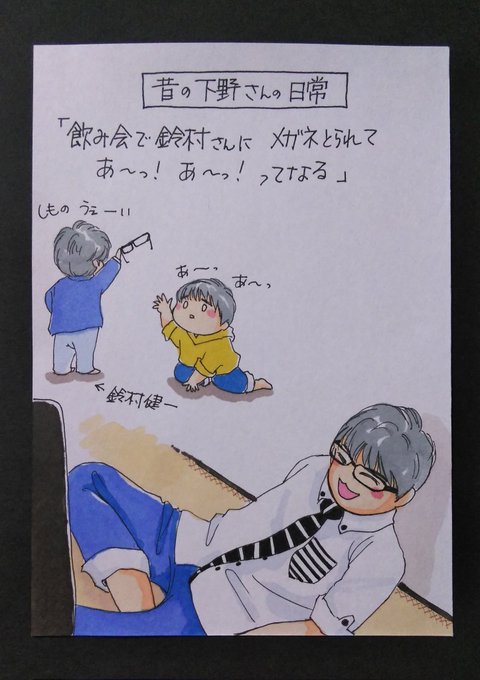 昔の下野さんの日常
「飲み会で鈴村さんに メガネとられて
あ〜っ! あ〜っ! ってなる」
しもの うぇーい
あ〜っ
あ〜っ
←鈴村健一